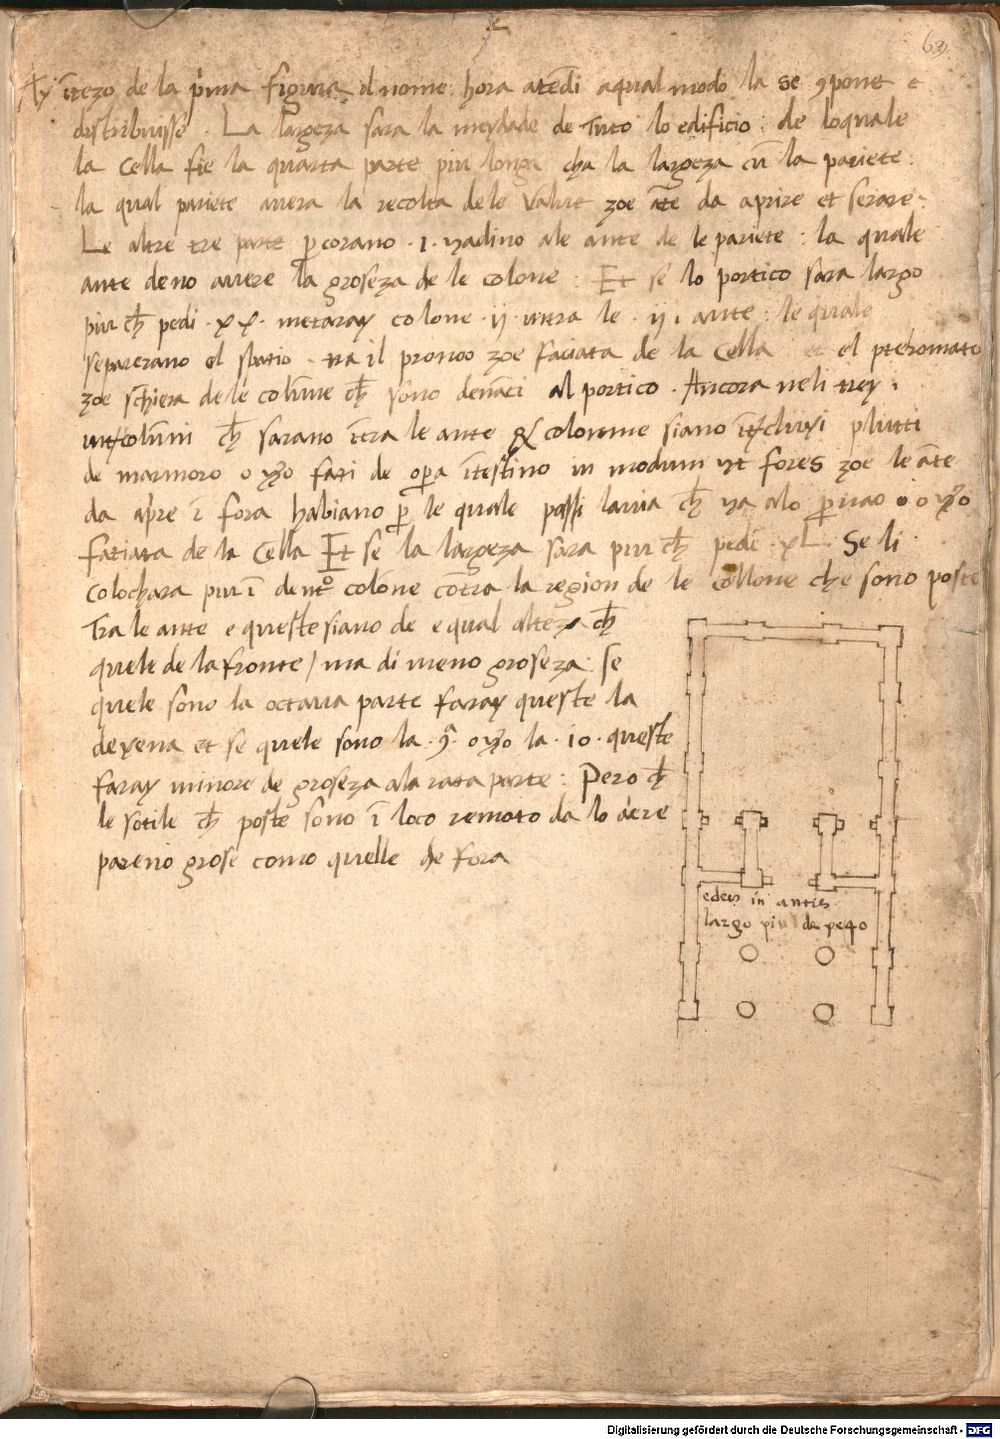 69
Ay ītezo de la pīna figura el nome hora atēdi a qual modo la se ꝯpone e
distribuisse . La largeza sara la meydade de Tuto lo edificio : de loquale
la Cella fie la quarta parte piu longa cha la largeza cū la pariete :
la qual pariete auera la recolta dele Value zoe āte da aprire et serare .
Le altre tre parte ꝑcorano . i . nadino ale ante de le pariete : la quale
ante deno auere la groseza de le colone : Et se lo portico sara largo
piu ch̄ pedi . xx . metaray colone . ij . intra le . ij . ante : le quale
separerano el spatio . tra il pronoo zoe faciata de la Cella et el pteromato
zoe schiera dele colūne ch̄ sono denāci al portico . Ancora neli trey .
colūni ch̄ sarano ītra le ante colonne siano plutti
de marmoro o ṽo fati de oꝑa ītestino in modum ut fores zoe le āte
da aṕre ī fora habiano ꝑ le quale passi la uia ch̄ ua alo ꝑnao o ṽo
fatiata de la Cella Et se la largeza sara piu ch̄ pedi . xL . Se li
colochara piu ī dentº colōne cōtra la region de le collone che sono poste
Tra le ante e queste siano de equal alteza ch̄
quele de la fronte / ma di meno groseza : se
quele sono la octaua parte faray queste la
dexena et se quele sono la . 9ª . o ṽo la . 10 . queste
faray minore de groseza ala rata parte : Pero ch̄
le sotile ch̄ poste sono ī loco remoto da lo aere
pareno grose como quelle de fora
edes in antis
largo piu de pe 40
Digitalisierung gefördert durch die Deutsche Forschungsgemeinschaft - DFG